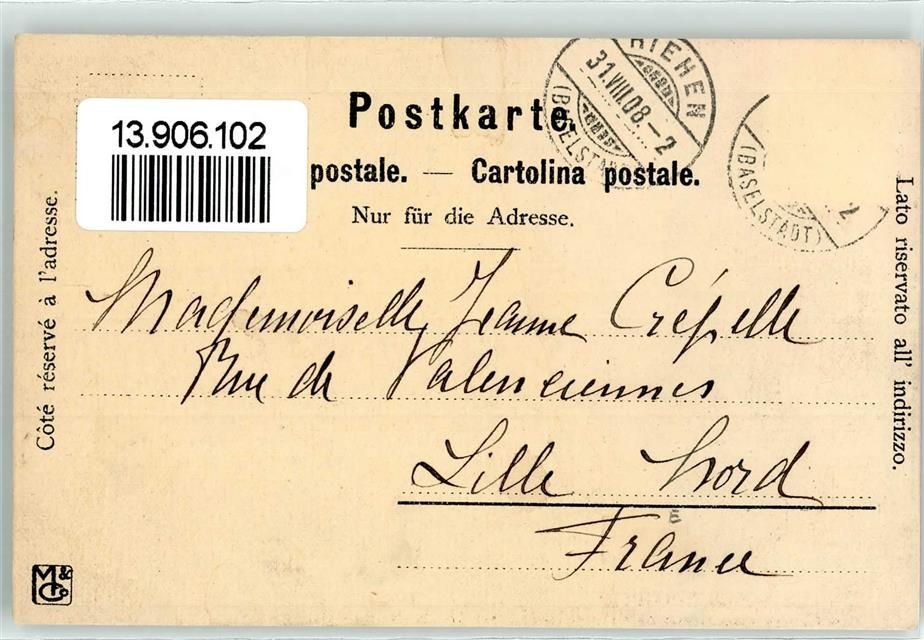 13.906.102
Postkarte.
postale. — Cartolina postale.
Nur für die Adresse.
RIEHEN
31.VIII.08.–2
(BASELSTADT)
2
(BASELSTADT)
Côté réservé à l'adresse.
Lato riservato all' indirizzo.
Mademoiselle Jeanne Crépelle
Rue de Valenciennes
Lille Nord
France
M & Co